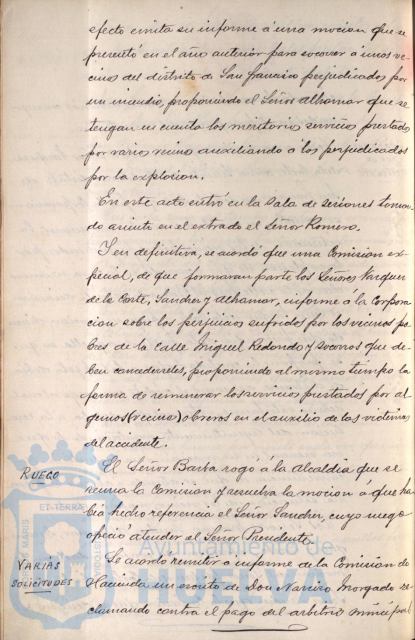 efecto emita su informe á una mocion que se
presentó en el año anterior para socorer á unos ve-
cinos del distrito de San Francisco perjudicados por
un incendio, proponiendo el Señor Alhamar que se
tengan en cuenta los meritorios servicios prestados
por varios vecinos auxiliando á los perjudicados
por la explosion.
En este acto entró en la Sala de sesiones toman-
do asiento en el extrado el Señor Romero.
Y en definitiva, se acordó que una Comision es-
pecial, de que formaran parte los Señores Vazquez
de la Corte, Sanchez y Alhamar, informe á la Corpora-
cion sobre los perjuicios sufridos por los vecinos po-
bres de la Calle Miguel Redondo y socorros que de-
ben concederseles, proponiendo al mismo tiempo la
forma de remunerar los servicios prestados por al-
gunos (vecinos) obreros en el auxilio de las victimas
del accidente.
RUEGO
El Señor Barba rogó á la Alcaldia que se
reuna la Comision y resuelva la mocion á que ha-
bia hecho referencia el Señor Sanchez, cuyo ruego
ofreció atender el Señor Presidente.
VARIAS
SOLICITUDES
Se acordó remitir á informe de la Comision de
Hacienda un escrito de Don Narciso Morgado re-
clamando contra el pago del arbitrio municipal
Ayuntamiento de
HUELVA